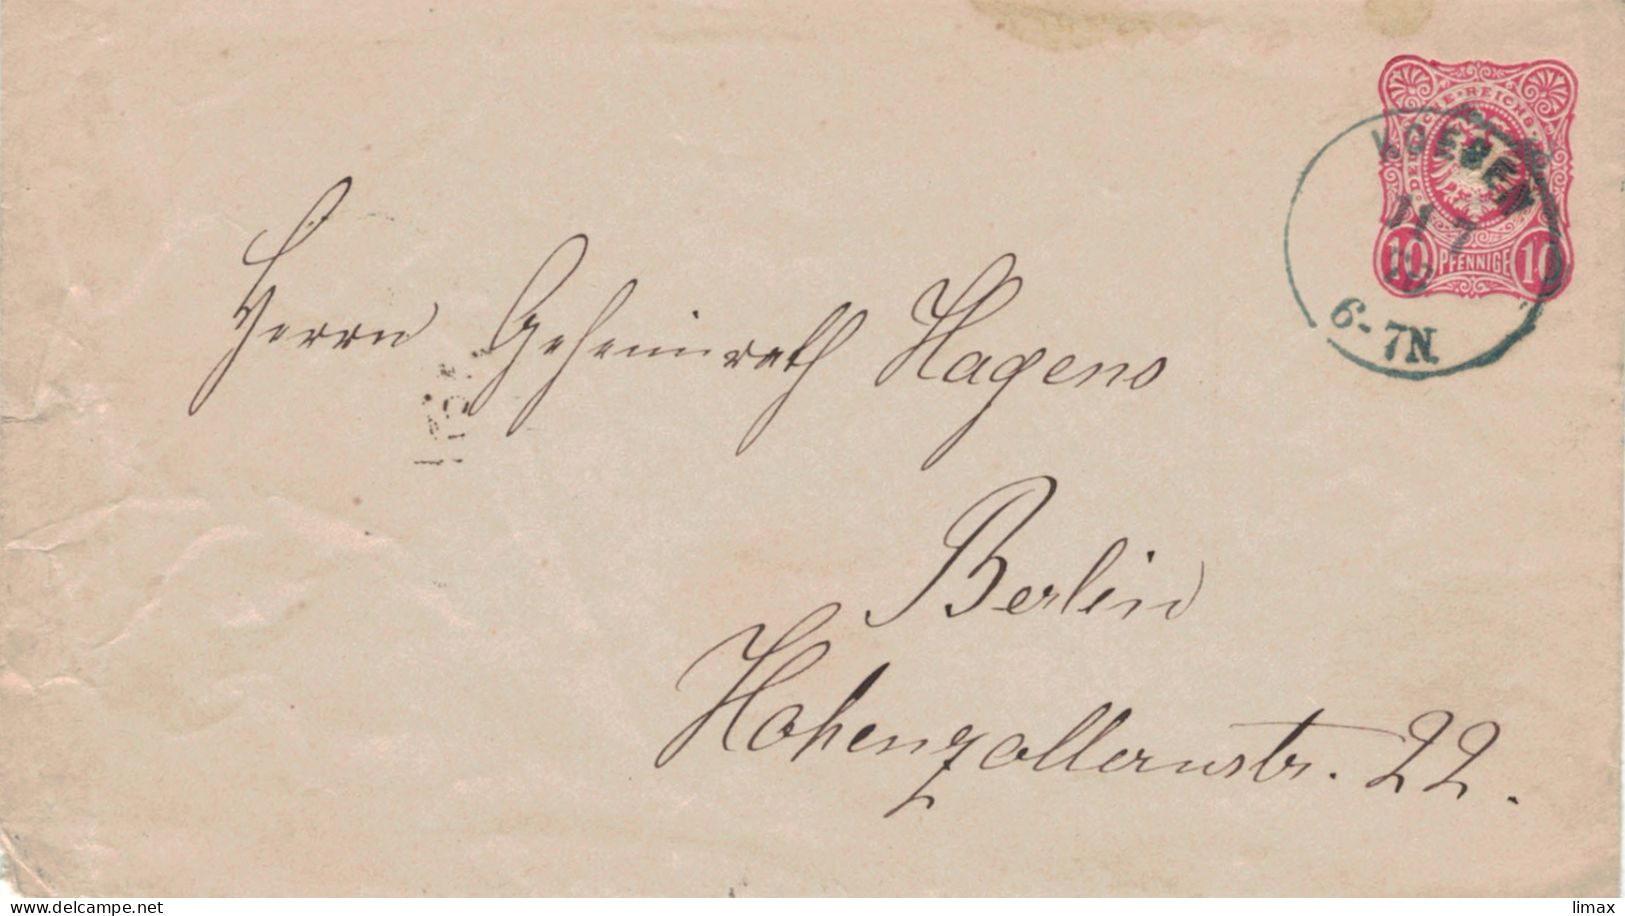 DEUTSCHE REICHS-POST
11 7
6-7N.
10 PFENNIGE 10
Herrn Geheimrath Hagens
Berlin
Hohenzollernstr. 22.
www.delcampe.net
limax